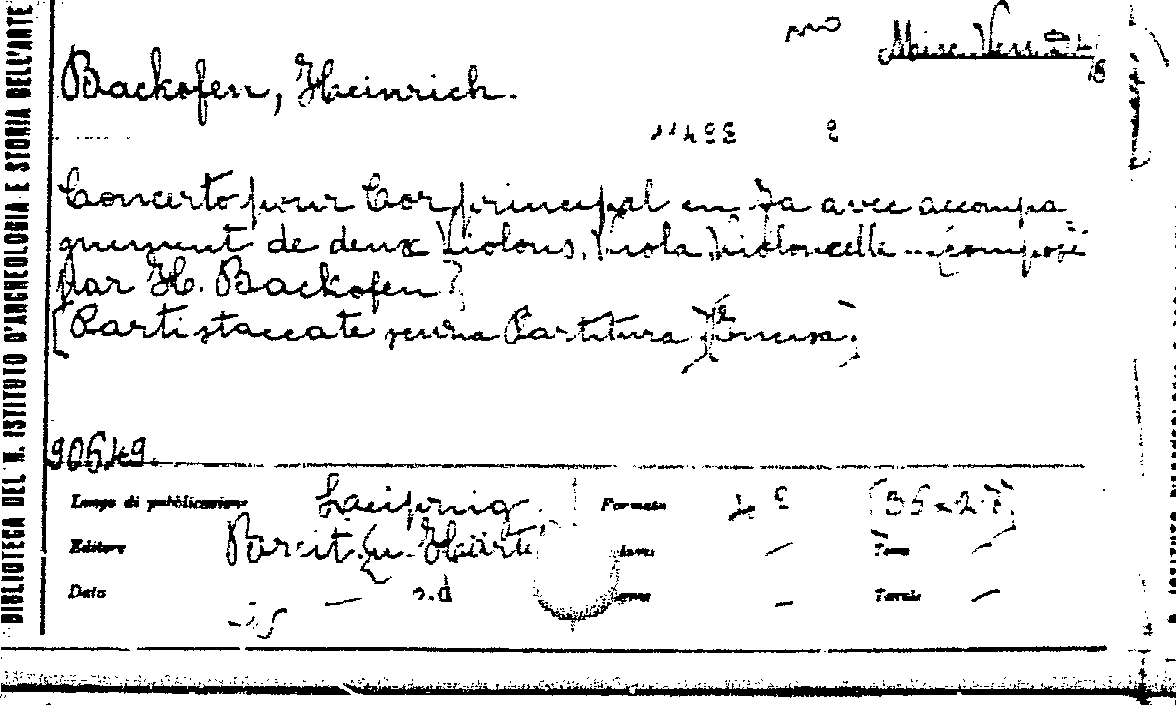 BIBLIOTECA DEL R. ISTITUTO D'ARCHEOLOGIA E STORIA DELL'ARTE
Backofen, Heinrich.
Concerto pour Cor principal en Fa avec accompa
gnement de deux Violons, Viola, Violoncelle ... composé
par H. Backofen
[Parti staccate senza Partitura]
90649.
Luogo di pubblicazione Leipzig Formato 4° (35 x 27)
Editore Breit. u. Härtel Tomo —
Data — s.d Tavole —